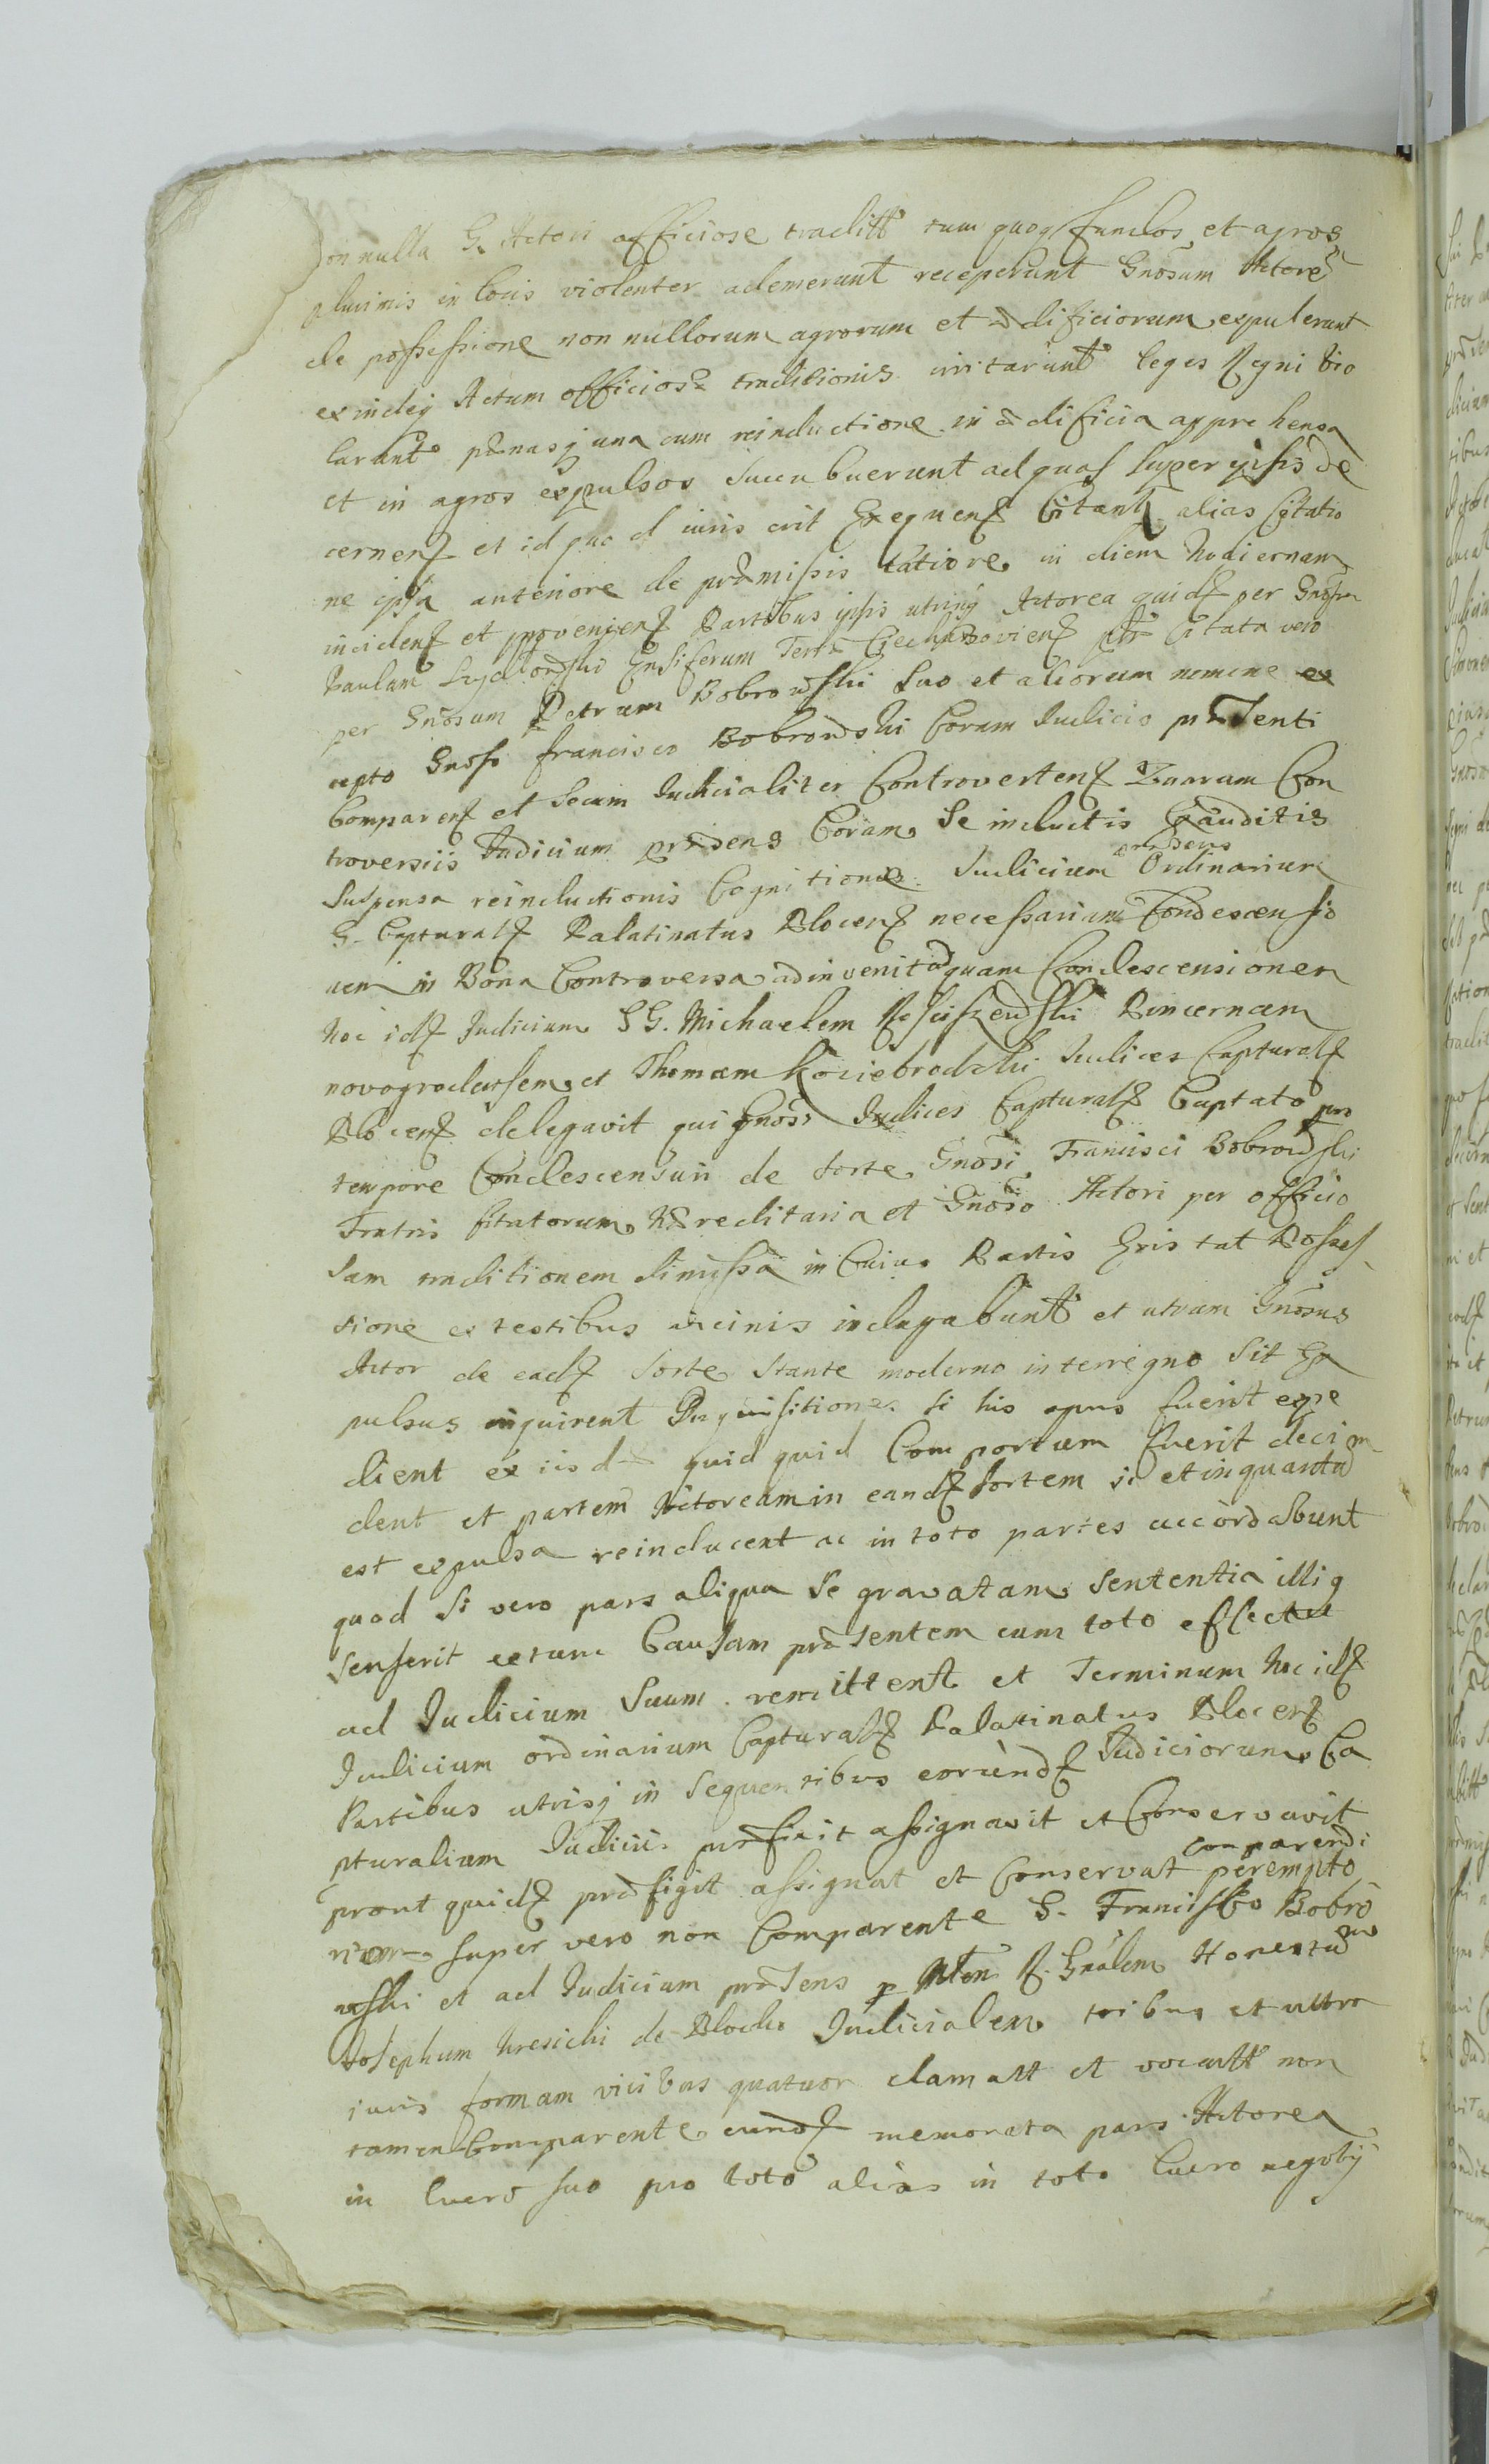 nonnulla G. Actori officiose tradita tum quoq fundos et agros
plurimis in locis violenter ademerunt receperunt Gnosum Actore
de possessione non nullorum agrorum et ædificiorum expulerunt
exindeq Actum officiosæ traditionis irritarunt leges Regni vio
larunt pænasq una cum reinductione in ædificia apprehensa
et in agros expulsos succubuerunt ad quas super ipsis de
cernen et id quod iuris erit Exequen Citant alias Citatio
ne ipsa anteriore de præmissis latiore in diem hodiernam
inciden et provenien Partibus ipsis utrinq Actorea quid per Gnosum
Paulum Ensiferum Terræ Ciechanovien Citata vero
per Gnosum Petrum Bobrowski suo et aliorum nomine ex
cepto Gnoso Francisco Bobrowski Coram Iudicio præsenti
Comparen et secum Iudicialiter Controverten Quarum Con
troversiis Iudicium præsens Coram se inductis Exauditis
Suspensa reinductionis Cognitione Iudicium præsens Ordinarium
G. Captural Palatinatus Plocen necessariam Condescensio
nem in Bona Controversa adinvenit ad quam Condescensionem
hoc id Iudicium GG. Michaelem Pincernam
novogrodensem et Thomam Koziebrodzki Iudices Captural
Plocen delegavit qui Gnosi Iudices Captural Captato pro
tempore Condescensuri de sorte Gnosi Francisci Bobrowski
Fratris Citatorum hæreditaria et Gnoso Actori per officio
sam traditionem dimissa in Cuius Partis Existat Posses
sione ex testibus vicinis indagabunt et utrum Gnosus
Actor de ead sorte stante moderno interregno sit Ex
pulsus inquirent Inquisitiones si his opus fuerit expe
dient ex iisd quid quid Compertum fuerit deciden
dent et partem Actoream in eand sortem si et in quantum
est expulsa reinducent ac in toto partes accordabunt
quod si vero pars aliqua se gravatam sententia illiq
senserit extunc Causam præsentem cum toto effectu
ad Iudicium suum remittent et Terminum hoc id
Iudicium ordinarium Captural Palatinatus Plocen
Partibus utrisq in sequentibus eorund Iudiciorum Ca
pturalium Iudiciis præfixit assignavit et Conservavit
prout quid præfigit assignat et Conservat comparendi perempto
rium super vero non Comparente G. Francisco Bobro
wski et ad Iudicium præsens p Mtem R. Gnalem Honestum
Josephum de Plocko Iudicialem tribus et ultra
iuris formam vicibus quatuor clamatt et vocatt non
tamen Comparente eund memorata pars Actorea
in lucro suo pro toto alias in toto lucro negoty